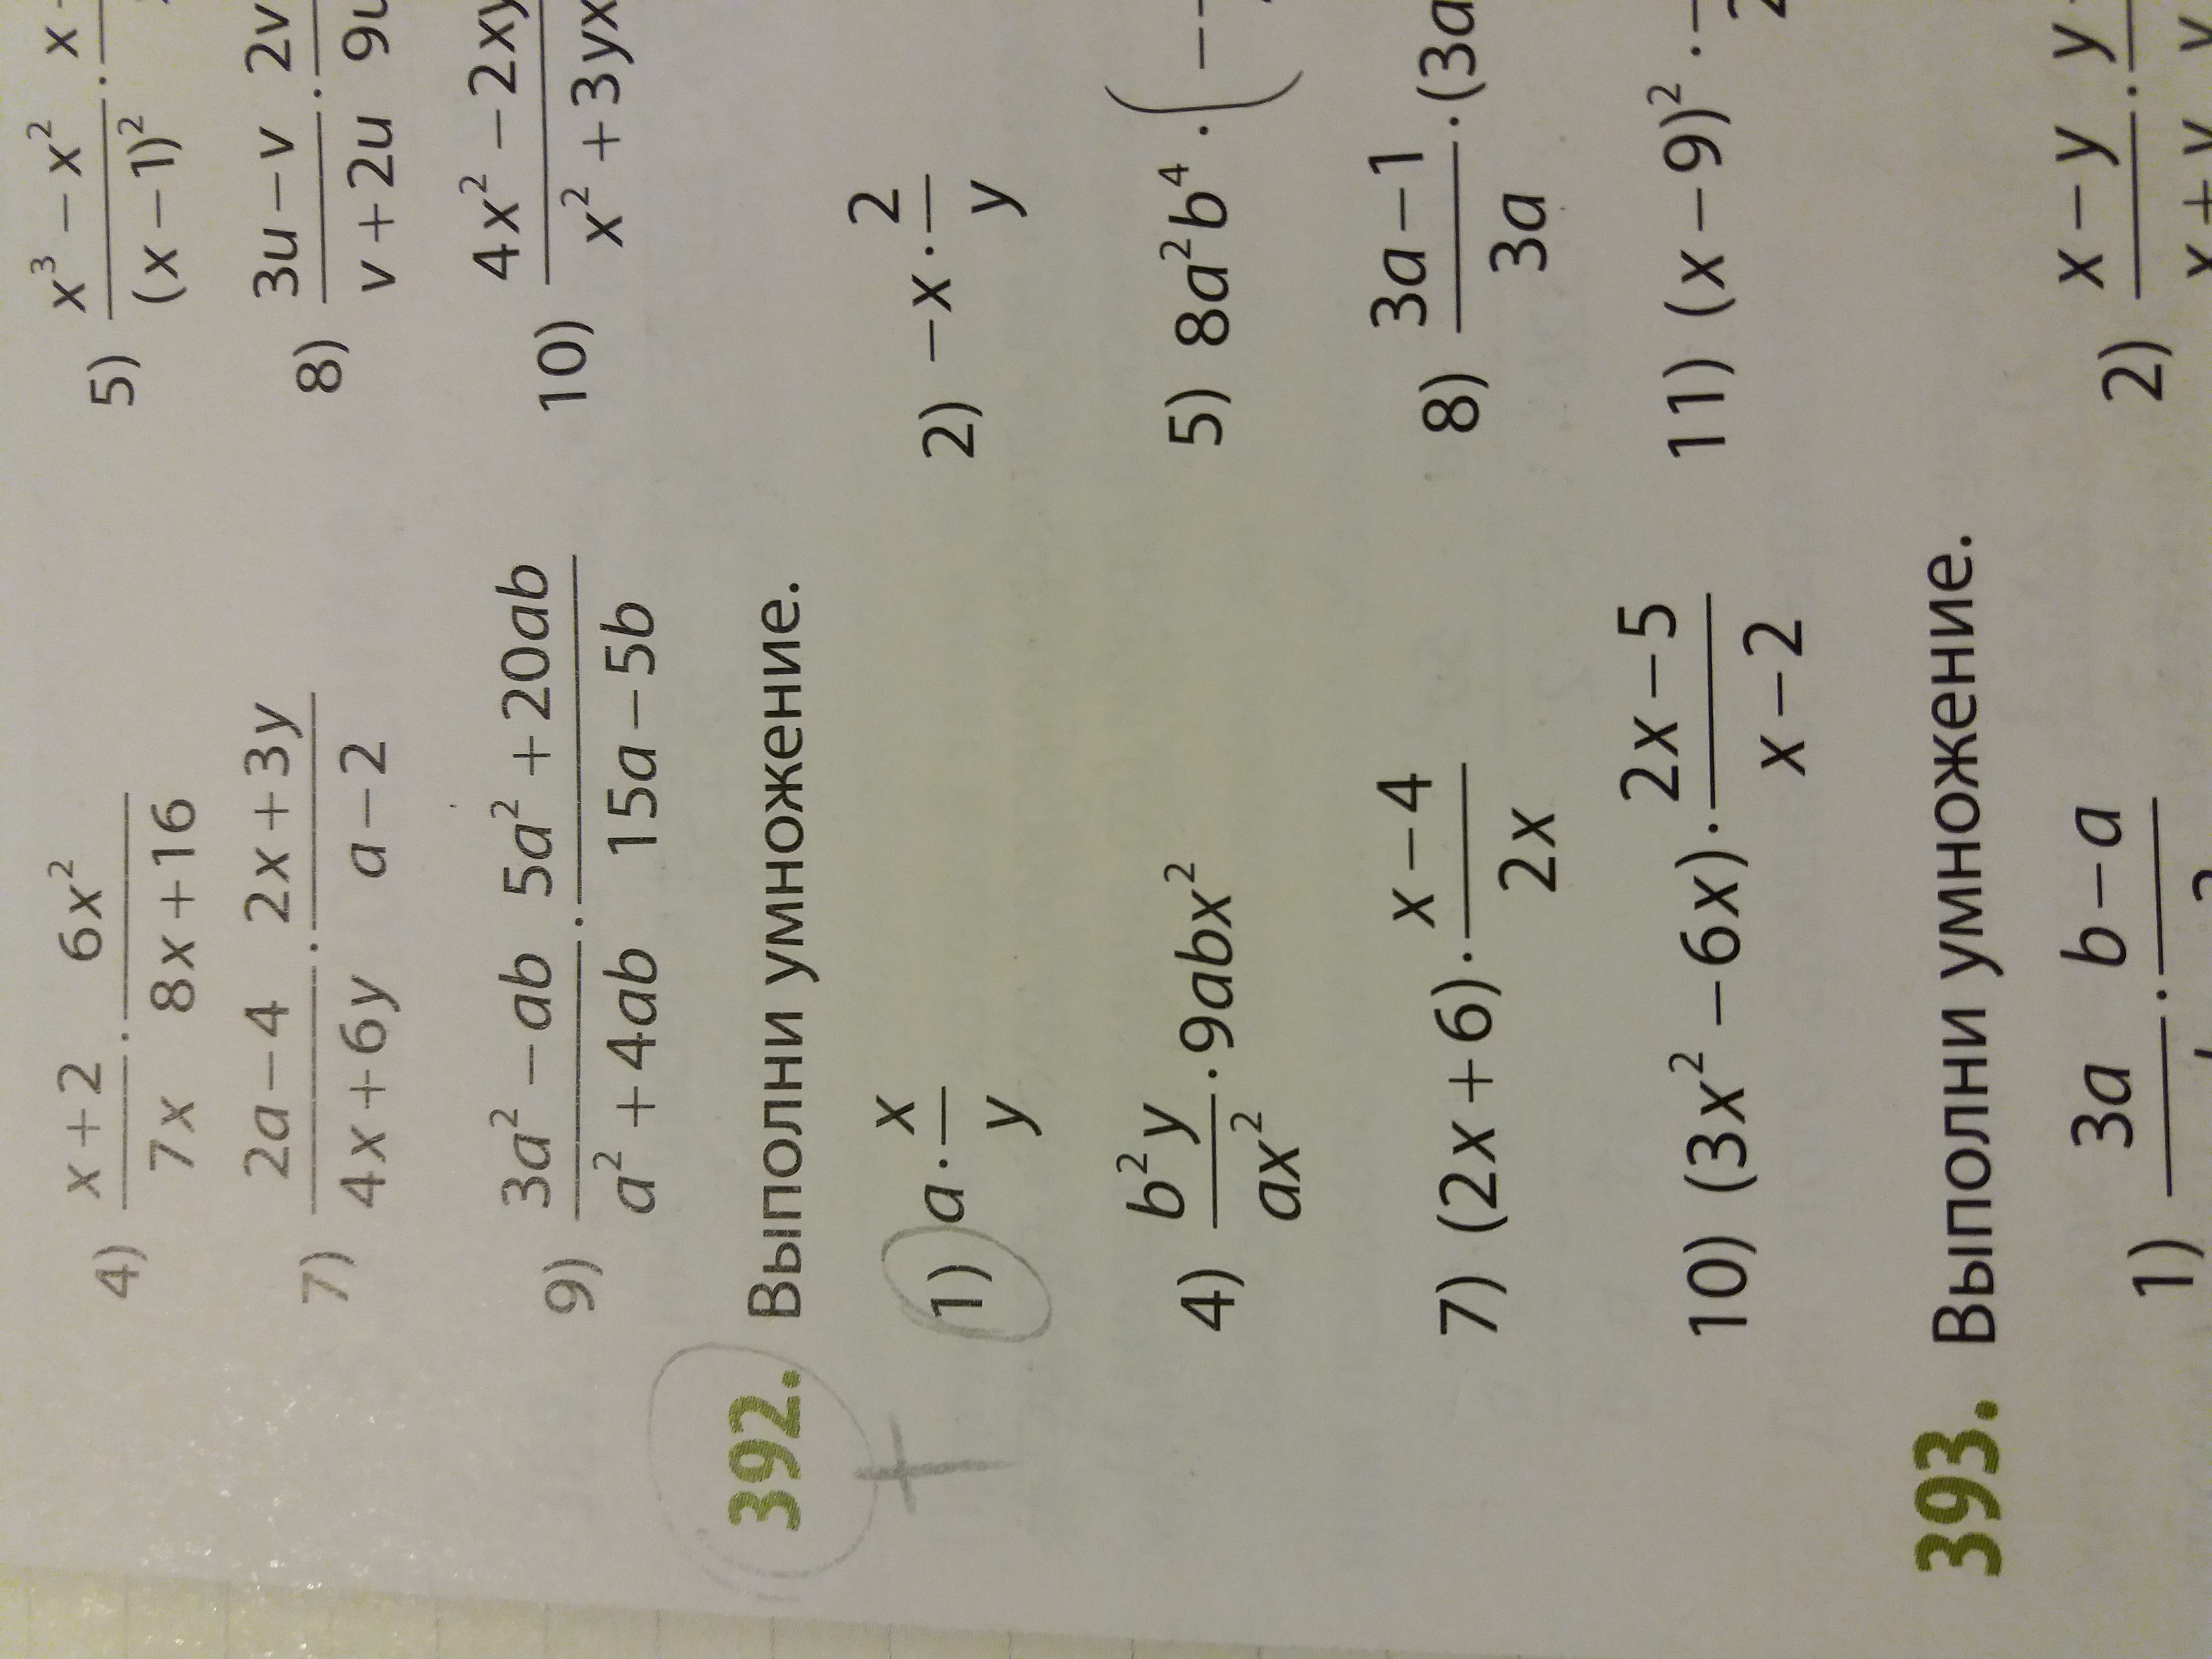 4) \frac{x+2}{7x} · \frac{6x²}{8x+16} 5) \frac{x³−x²}{(x−1)²} ·
7) \frac{2a−4}{4x+6y} · \frac{2x+3y}{a−2} 8) \frac{3u−v}{v+2u} · 2v 9u
9) \frac{3a²−ab}{a²+4ab} · \frac{5a²+20ab}{15a−5b} 10) \frac{4x²−2xy}{x²+3yx}
392. Выполни умножение.
1) a · \frac{x}{y} 2) −x · \frac{2}{y}
4) \frac{b²y}{ax²} · 9abx² 5) 8a²b⁴ · (−
7) (2x+6) · \frac{x−4}{2x} 8) \frac{3a−1}{3a} · (3a
10) (3x²−6x) · \frac{2x−5}{x−2} 11) (x−9)² ·
393. Выполни умножение.
1) 3a · b−a 2) \frac{x−y}{x+y} · y